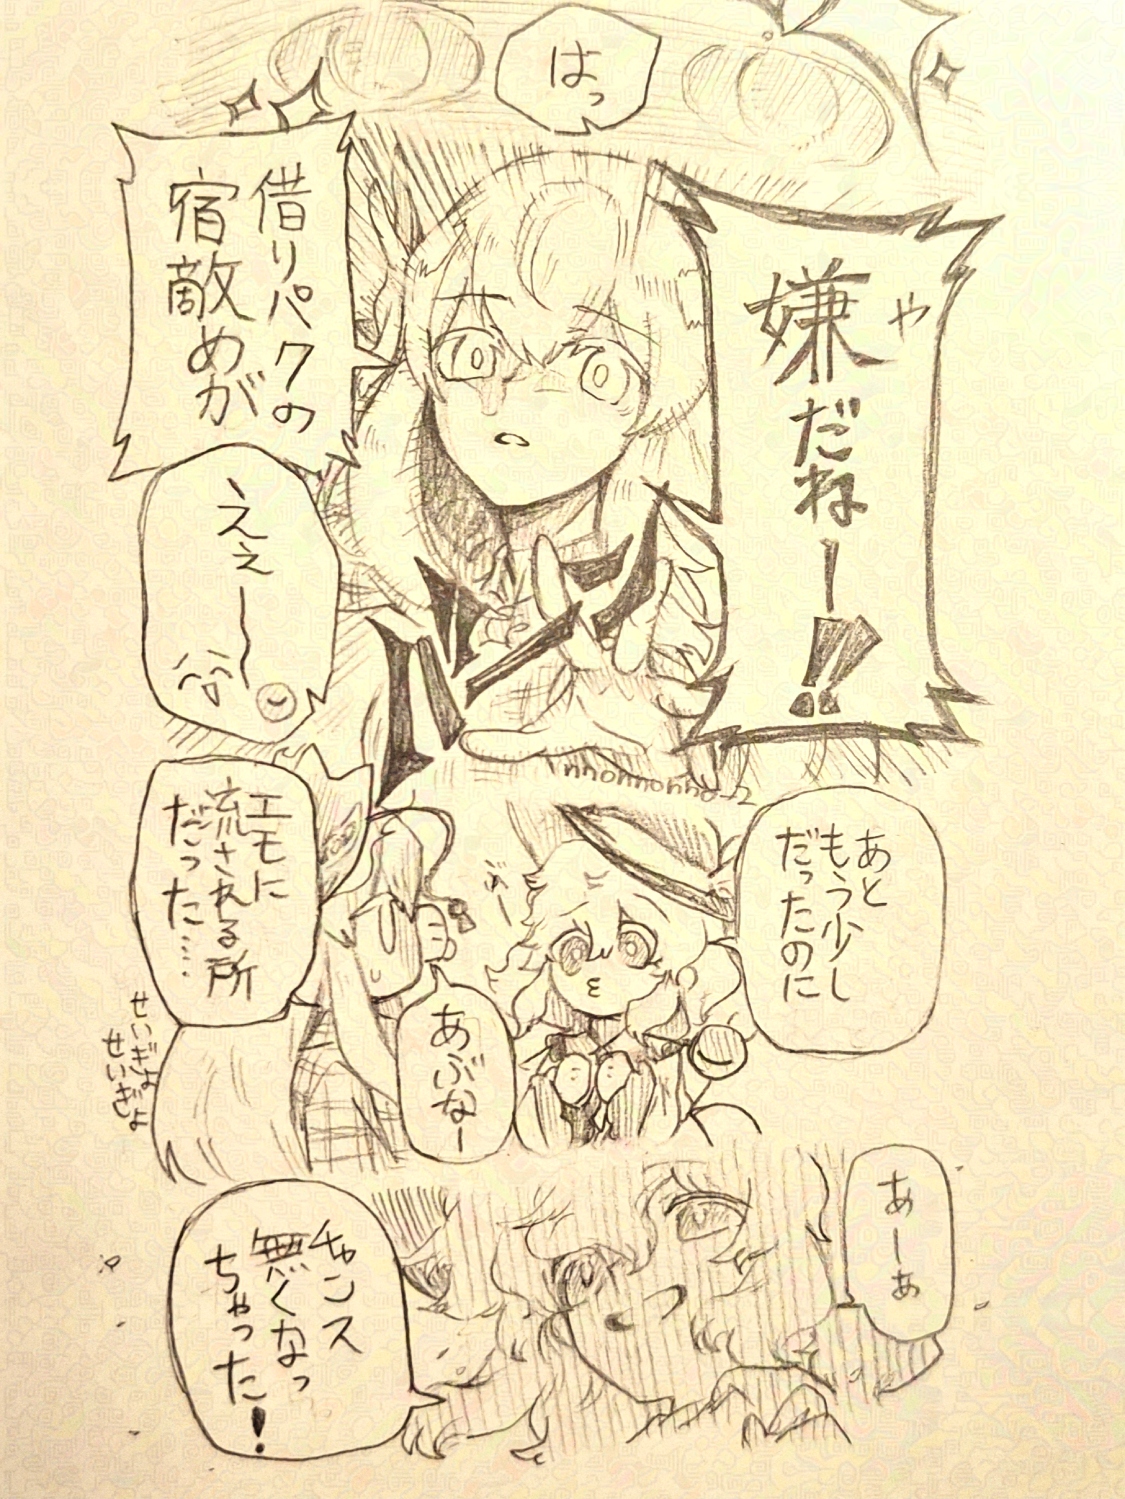 はっ
や
嫌だねー!!
借りパクの
宿敵めが
ええ〜
nnonnonno-2
あと
もう少し
だったのに
めー
エモに
流される所
だった….
せいぎょ
せいぎょ
あぶなー
あーぁ
チャンス
無くなっ
ちゃった!